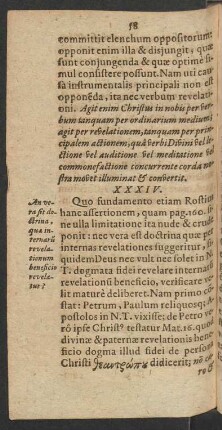 58
committit elenchum oppositorum
opponit enim illa & disjungit, quæ
sunt conjungenda & quæ optime si-
mul consistere possunt. Nam uti cau-
sa instrumentalis principali non est
opponẽda, ita nec verbum revelati-
oni. Agit enim Christus in nobis per ver-
bum tanquam per ordinarium medium:
agit per revelationem, tanquam per prin-
cipalem actionem, quâ verbi Divini vel le-
ctione vel auditione vel meditatione vel
commonefactione concurrente corda no-
stra movet illuminat & convertit.
XXXIV.
An ve-
ra sit do-
ctrina,
qua in-
ternarũ
revela-
tionum
beneficio
revela-
tur?
Quo fundamento etiam Rostius
hanc assertionem, quam pag. 100.
nulla limitatione ita nude & crude
ponit: nec vera est doctrina quæ per
internas revelationes suggeritur,
quidem Deus nec vult nec solet in N.
T. dogmata fidei revelare internarũ
revelationũ beneficio, verificare ve-
lit maturè deliberet. Nam primo cõ-
stat: Petrum, Paulum reliquosq; A-
postolos in N.T. vixisse; de Petro ve-
rò ipse Christ⁹ testatur Mat. 16. quod
divinæ & paternæ revelationis bene-
ficio dogma illud fidei de persona
Christi θεανθρώπου didicerit;